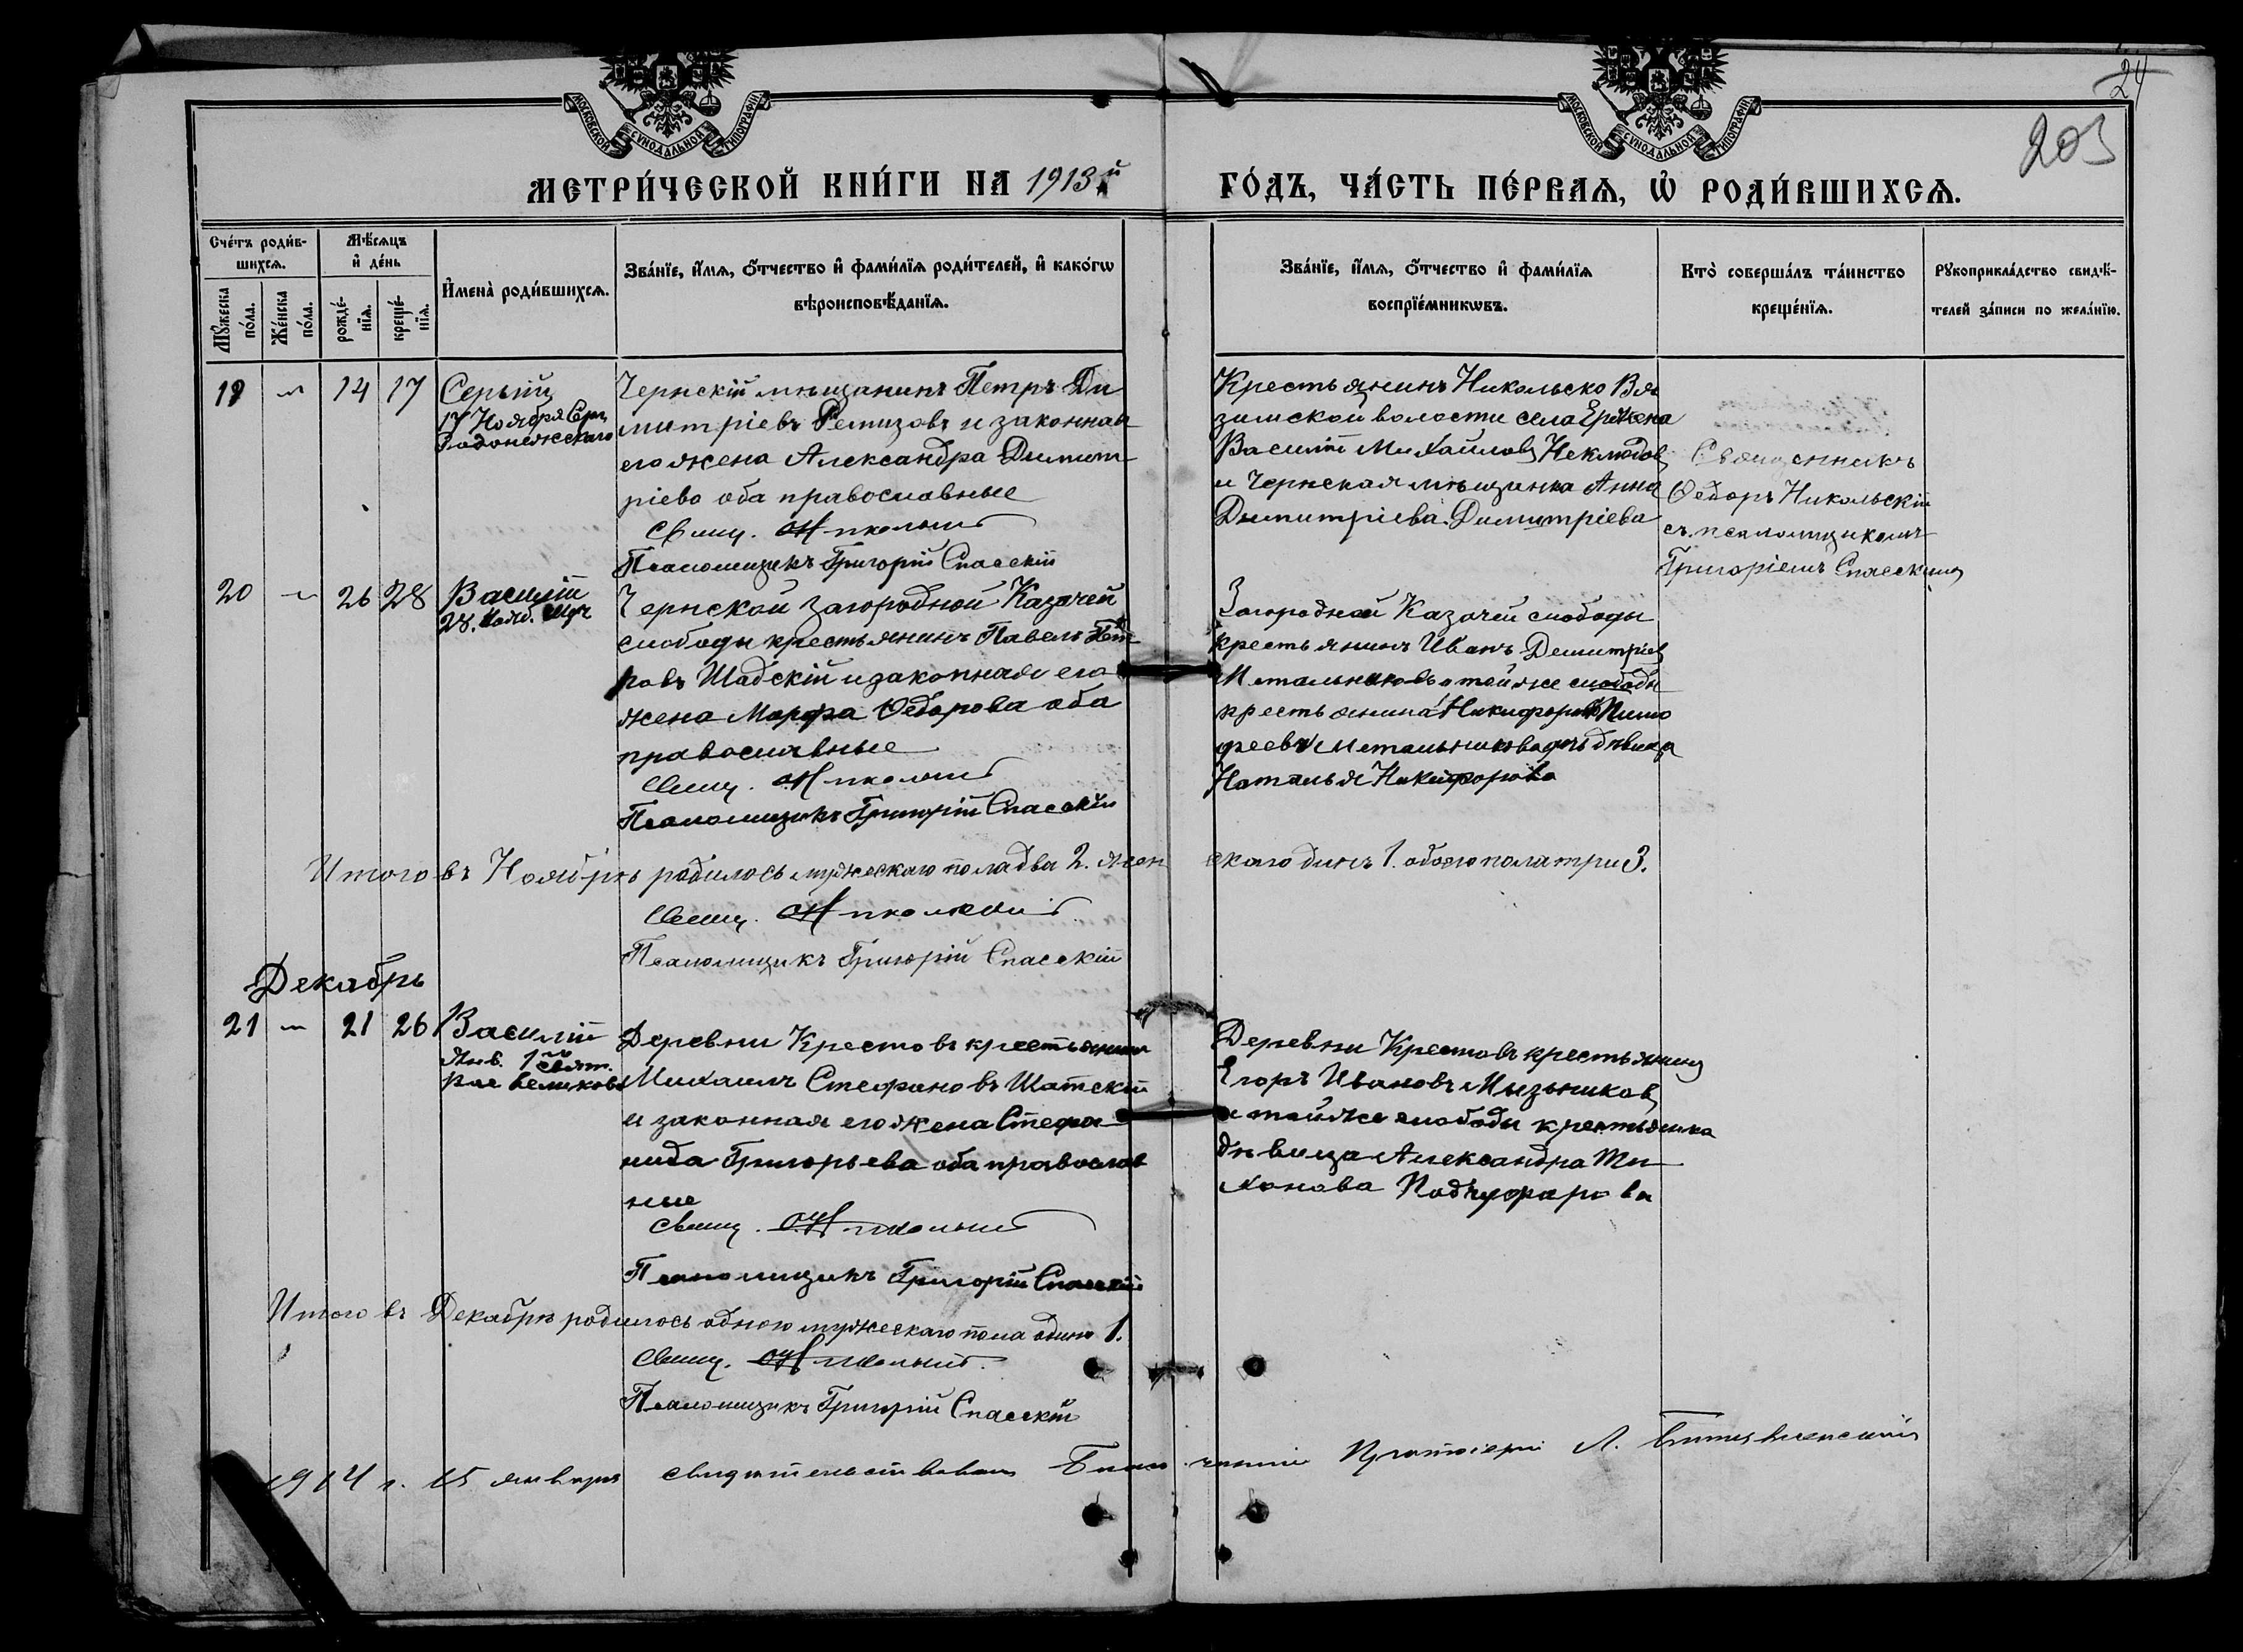 24
203
МОСКОВСКОЙ СѴНОДАЛЬНОЙ ТИПОГРАФІИ
МОСКОВСКОЙ СѴНОДАЛЬНОЙ ТИПОГРАФІИ
МЕТРИ́ЧЕСКОЙ КНИ́ГИ НА 1913й ГО́ДЪ, ЧА́СТЬ ПЕ́РВАѦ, Ѡ҆ РОДИ́ВШИХСѦ.
Сче́тъ роди́в-
шихсѧ.
Мꙋ́жеска по́ла.
Же́нска по́ла.
Мѣ́сѧцъ
и҆ де́нь
рожде́-
нїѧ.
креще́-
нїѧ.
И҆мена̀ роди́вшихсѧ.
Зва́нїе, и҆́мѧ, ѻ҆́тчество и҆ фамі́лїѧ роди́телей, и҆ како́гѡ
вѣроисповѣ́данїѧ.
Зва́нїе, и҆́мѧ, ѻ҆́тчество и҆ фамі́лїѧ
воспрїе́мникѡвъ.
Кто̀ соверша́лъ та́инство
креще́нїѧ.
Рꙋкоприкла́дство свидѣ́-
телей за́писи по жела́нїю.
19 — 14 17 Сергій
17 Ноября Сер.
Радонежскаго
Чернскій мѣщанинъ Петръ Ди
митріевъ Ремизовъ и законная
его жена Александра Димит
ріева оба православные
Свящ. Ѳ. Никольскій
Псаломщикъ Григорій Спасскій
Крестьянинъ Никольско Вя
земской волости села
Василій Михайловъ Неклюдовъ
и Чернская мѣщанка Анна
Димитріева Димитріева
Священникъ
Ѳедоръ Никольскій
съ псаломщикомъ
Григоріемъ Спасскимъ
20 — 26 28 Василій
28. Нояб. муч
Чернской загородной Казачей
слободы крестьянинъ Павелъ Пет
ровъ Шадскій и законная его
жена Марфа Ѳедорова оба
православные
Свящ. Ѳ. Никольскій
Псаломщикъ Григорій Спасскій
Загородной Казачей слободы
крестьянинъ Иванъ Димитріевъ
Метальниковъ и той же слободы
крестьянина Никифора Тимо
феева Метальникова дочь дѣвица
Наталья Никифорова
Итого въ Ноябрѣ родилось мужескаго пола два 2. жен скаго динъ 1. обоего пола три 3.
Свящ. Ѳ. Никольскій
Псаломщикъ Григорій Спасскій
Декабрь
21 — 21 26 Василій
Янв. 1 Свят.
Вас Великова
Деревни Крестовъ крестьянинъ
Михаилъ Стефановъ Шатскій
и законная его жена Стефа
нида Григорьева оба православ
ные
Свящ. Ѳ. Никольскій
Псаломщикъ Григорій Спасскій
Деревни Крестовъ крестьянинъ
Егоръ Ивановъ Мызниковъ
и той же слободы крестьянка
дѣвица Александра Ти
хонова Подчуфарова
Итого въ Декабрѣ родилось одного мужескаго пола одинъ 1.
Свящ. Ѳ. Никольскій
Псаломщикъ Григорій Спасскій
1914 г. 15 января свидѣтельствовалъ Благочинный Протоіерей Л.